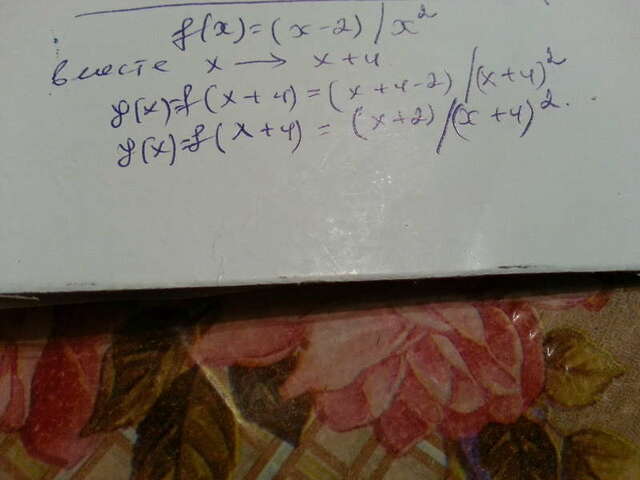 f(x)=(x-2)/x²
вместе x → x+4
y(x)=f(x+4)=(x+4-2)/(x+4)²
y(x)=f(x+4)=(x+2)/(x+4)².